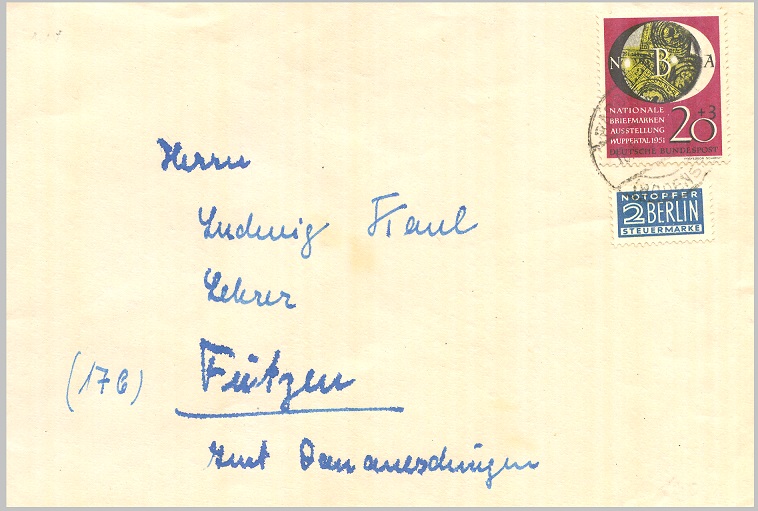 N B A
NATIONALE
BRIEFMARKEN
AUSSTELLUNG
WUPPERTAL 1951
20 + 3
DEUTSCHE BUNDESPOST
NOTOPFER
2 BERLIN
STEUERMARKE
Herrn
Ludwig Kaul
Lehrer
(17b) Fützen
Amt Donaueschingen